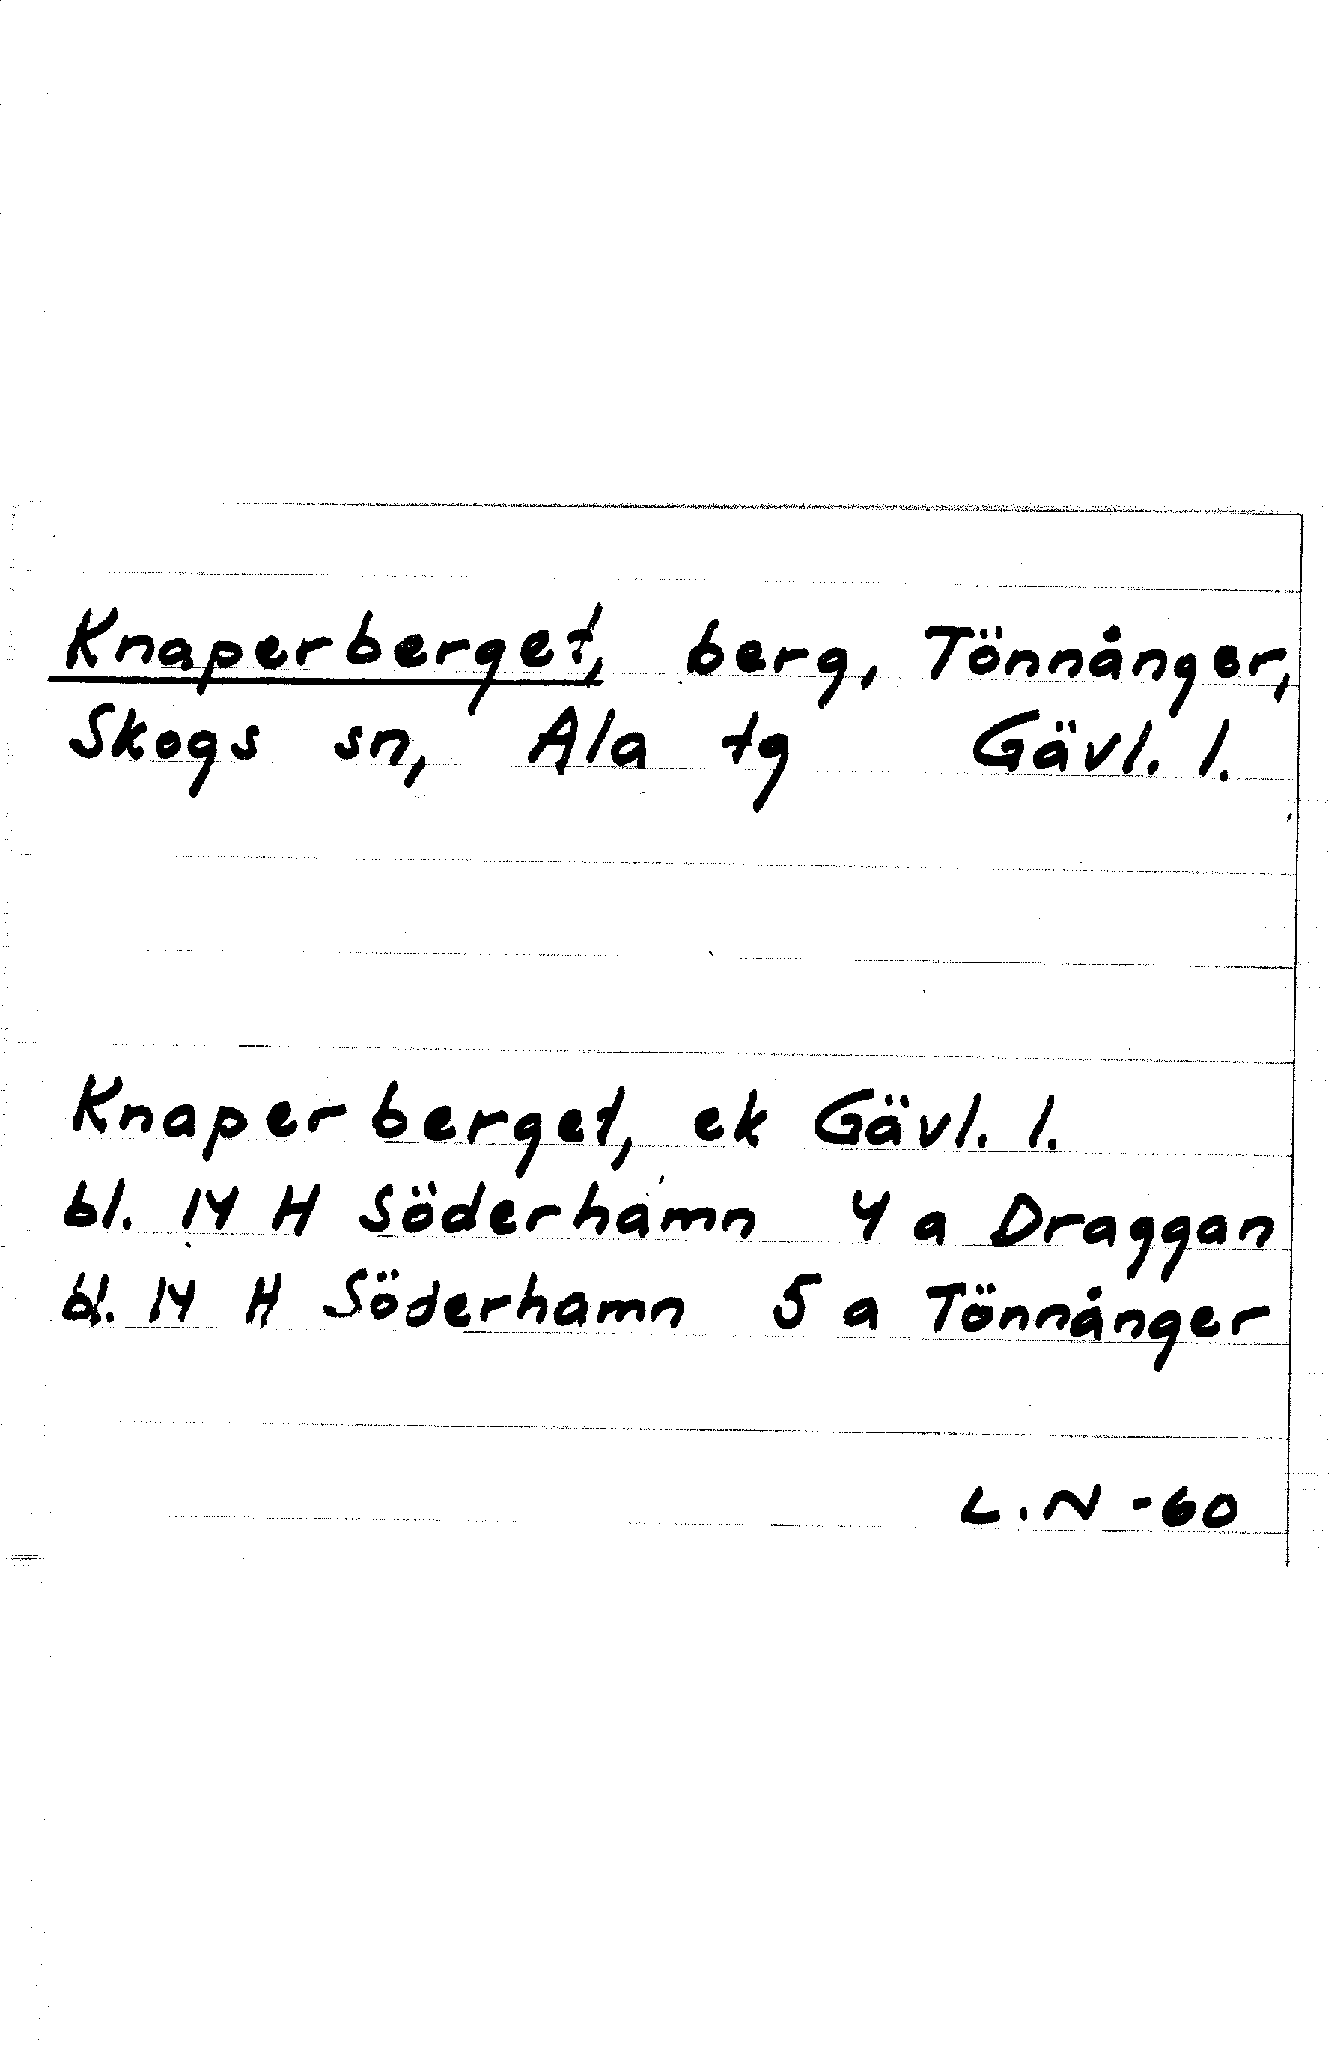 Knaperberget, berg, Tönnånger,
Skogs sn, Ala tg Gävl. l.
Knaperberget, ek Gävl. l.
bl. 14 H Söderhamn 4 a Draggan
bl. 14 H Söderhamn 5 a Tönnånger
L.N -60